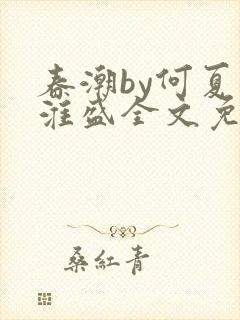 春潮by何夏
淮盛全文免
桑红青